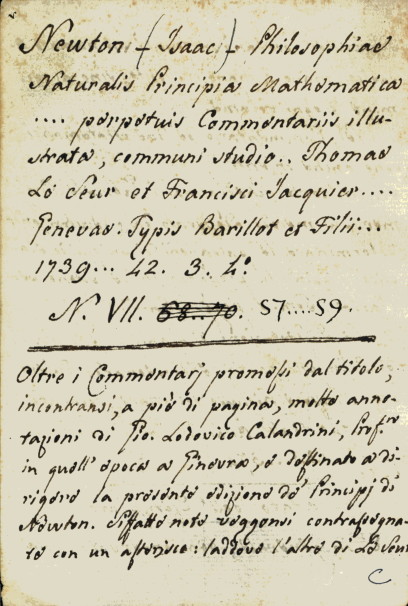 Newton (Isaac) Philosophiae
Naturalis Principia Mathematica
.... perpetuis Commentariis illu-
strata, communi studio.. Thomae
Le Seur et Francisci Jacquier....
Genevae. Typis Barillot et Filii...
1739... 42. 3. 4.º
N.º VII. 68..70. 57....59.
Oltre i Commentarj promessi dal titolo,
incontransi, a piè di pagina, molte anno-
tazioni di Gio. Lodovico Calandrini, Prof.re
in quell' epoca a Ginevra, e destinato a di-
rigere la presente edizione de' Principj di
Newton. Siffatte note veggonsi contrassegna-
te con un asterisco: laddove l'altre di Le Seur
C